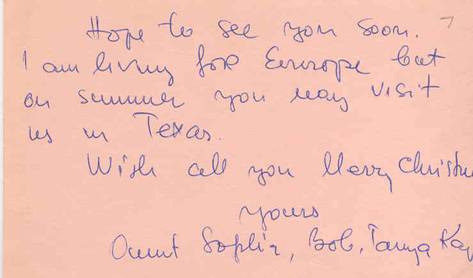 Hope to see you soon.
I am living for Europe but
on summer you may visit
us in Texas.
Wish all you Merry Christm
yours
Aunt Sophia, Bob, Tanya Kay